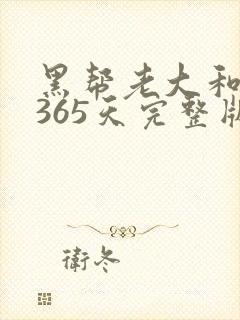 黑帮老大和
365天完整版
衛冬